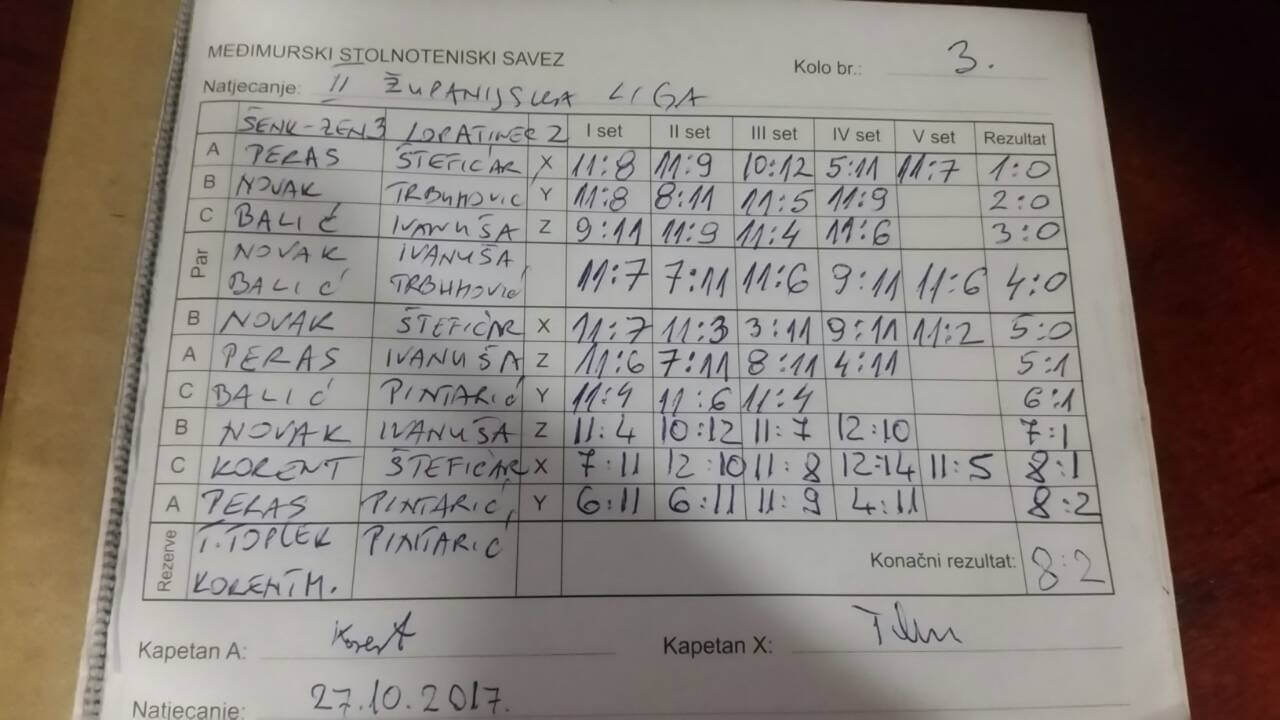 MEĐIMURSKI STOLNOTENISKI SAVEZ
Kolo br.: 3.
Natjecanje: II ŽUPANIJSKA LIGA
ŠENK-ZEN 3 LOPATINEC 2 I set II set III set IV set V set Rezultat
A PERAS ŠTEFIČAR X 11:8 11:9 10:12 5:11 11:7 1:0
B NOVAK TRBUHOVIĆ Y 11:8 8:11 11:5 11:9 2:0
C BALIĆ IVANUŠA Z 9:11 11:9 11:4 11:6 3:0
Par NOVAK IVANUŠA
BALIĆ TRBUHOVIĆ 11:7 7:11 11:6 9:11 11:6 4:0
B NOVAK ŠTEFIČAR X 11:7 11:3 3:11 9:11 11:2 5:0
A PERAS IVANUŠA Z 11:6 7:11 8:11 4:11 5:1
C BALIĆ PINTARIĆ Y 11:4 11:6 11:4 6:1
B NOVAK IVANUŠA Z 11:4 10:12 11:7 12:10 7:1
C KORENT ŠTEFIČAR X 7:11 12:10 11:8 12:14 11:5 8:1
A PERAS PINTARIĆ Y 6:11 6:11 11:9 4:11 8:2
Rezerve T.TOPLEK PINTARIĆ
KORENT M.
Konačni rezultat: 8:2
Kapetan A: Korent
Kapetan X:
Natjecanje: 27.10.2017.